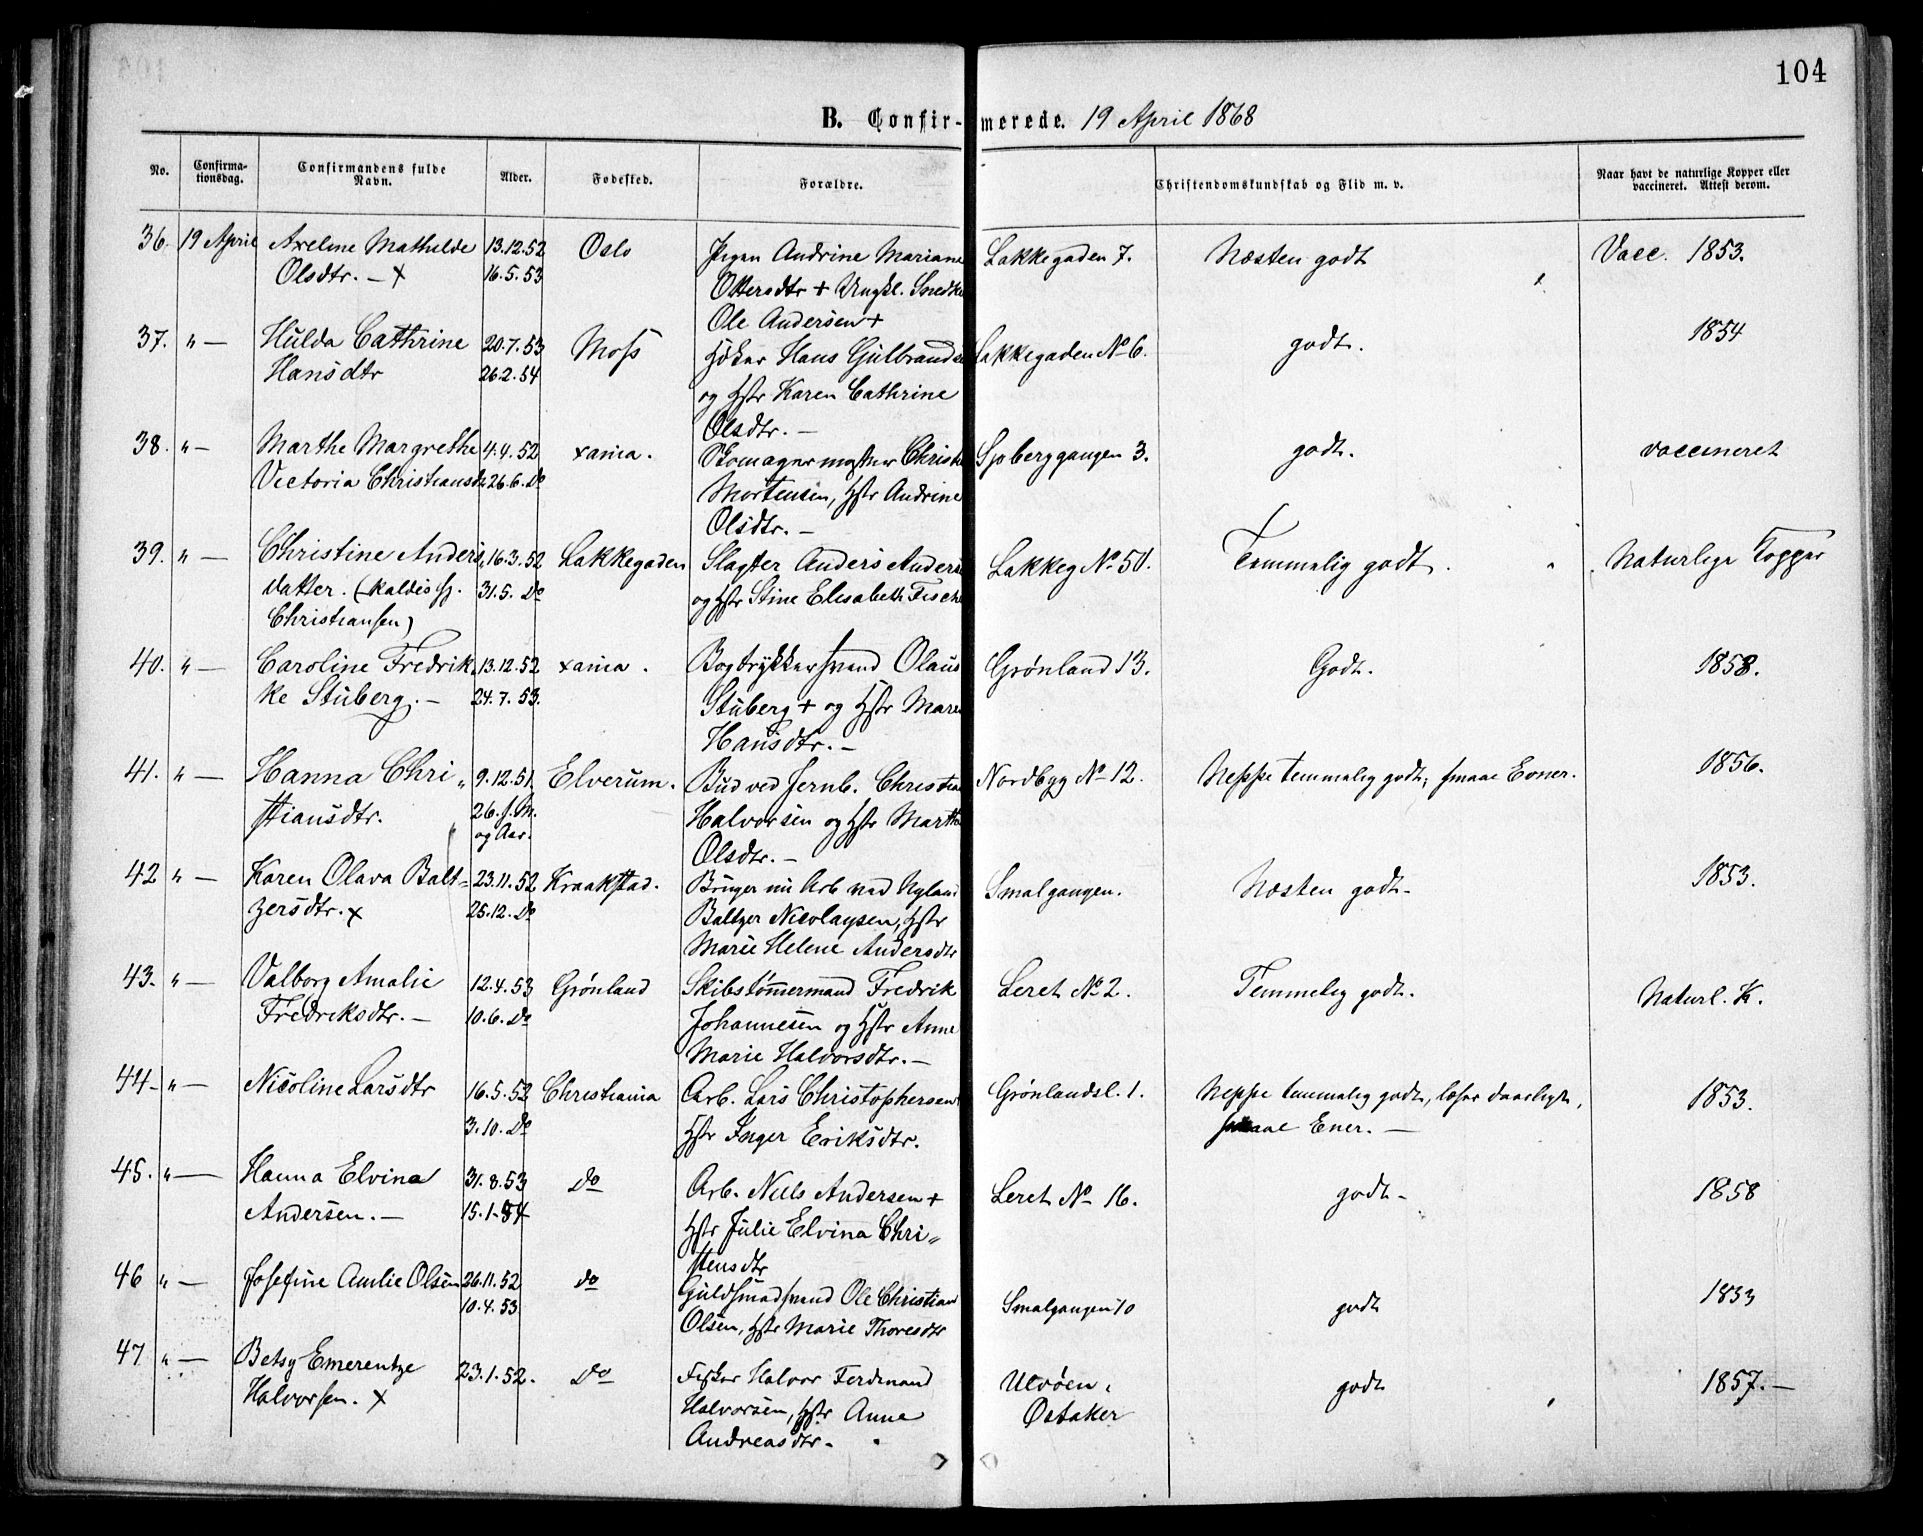 104
B. Confir-merede. 19 April 1868
No.
Confirma-
tionsdag.
Confirmandens fulde
Navn.
Alder.
Fødested.
Forældre.
Christendomskundskab og Flid m. v.
Naar havt de naturlige Kopper eller
vaccineret. Attest derom.
36. 19 April Axeline Mathilde 13.12.52 Oslo Pigen Andrine Mariane Lakkegaden 7. Næsten godt Vacc. 1853.
Olsdtr. - x 16.5.53 Ottersdtr + Ungkl. Snedk
Ole Andersen +
37. " — Hulda Cathrine 20.7.53 Moss Høker Hans Gulbrands Lakkegaden No 6. godt. 1854
Hansdtr 26.2.54 og Hstr Karen Cathrine
Olsdtr. —
38. " — Marthe Margrethe 4.4.52 xania. Skomagermester Christi Sjøberggangen 3. godt. vaccineret
Victoria Christiansdt 26.6. Do Mortensen, Hstr Andrine
Olsdtr. —
39. " — Christine Anders, 16.3.52 Lakkegaden Slagter Anders Anders Lakkeg No 50. Temmelig godt. Naturlige Kopper
datter. (kaldes sig. 31.5. Do og Hstr Stine Elisabeth Fische
Christiansen)
40. " — Caroline Fredrik 13.12.52 xania. Bogtrykkersvend Olaus Grønland 13. Godt. 1858.
ke Stuberg. — 24.7.53. Stuberg + og Hstr Maren
Hansdtr. —
41. " — Hanna Chri„ 9.12.51. Elverum. Bud ved Jernb. Christian Nordbyg No 12. Neppe temmelig godt; smaae Evner. 1856.
stiansdtr. 26. s. M. Halvorsen og Hstr Marth
og Aar. Olsdtr. —
42 " — Karen Olava Balt= 23.11.52 Kraakstad. Bruger nu Arb ved Nyland Smalgangen. Næsten godt. 1853.
zersdtr. x 25.12. Do Baltzer Nicolaysen, Hstr
Marie Helene Andersdtr
43. " — Valborg Amalie 12.4.53 Grønland Skibstømmermand Fredrik Leret No 2. Temmelig godt. Naturl. K.
Fredriksdtr. — 10.6. Do Johannesen og Hstr Anne
Marie Halvorsdtr. —
44- " — Nicoline Larsdtr 16.5.52 Christiania Arb. Lars Christophersen Grønlandsl. 1. Neppe temmelig godt, læser daarligt, 1853.
3.10. Do Hstr Inger Eriksdtr. smaae Evner. —
45. " — Hanna Elvina 31.8.53 do Arb. Nils Andersen + Leret No 16. godt- 1858
Andersen. — 15.1.54 Hstr Julie Elvina Chri„
stensdtr
46 " — Josefine Amlie Olsen 26.11.52 do Guldsmedsvend Ole Christian Smalgangen 10 godt 1853
10.4.53 Olsen, Hstr Marie Thoresdtr
47 " — Betsy Emerentze 23.1.52. Do Fisker Halvor Ferdinand Ulvøen, godt 1857. —
Halvorsen. x Halvorsen, Hstr Anne Østaker
Andreasdtr.